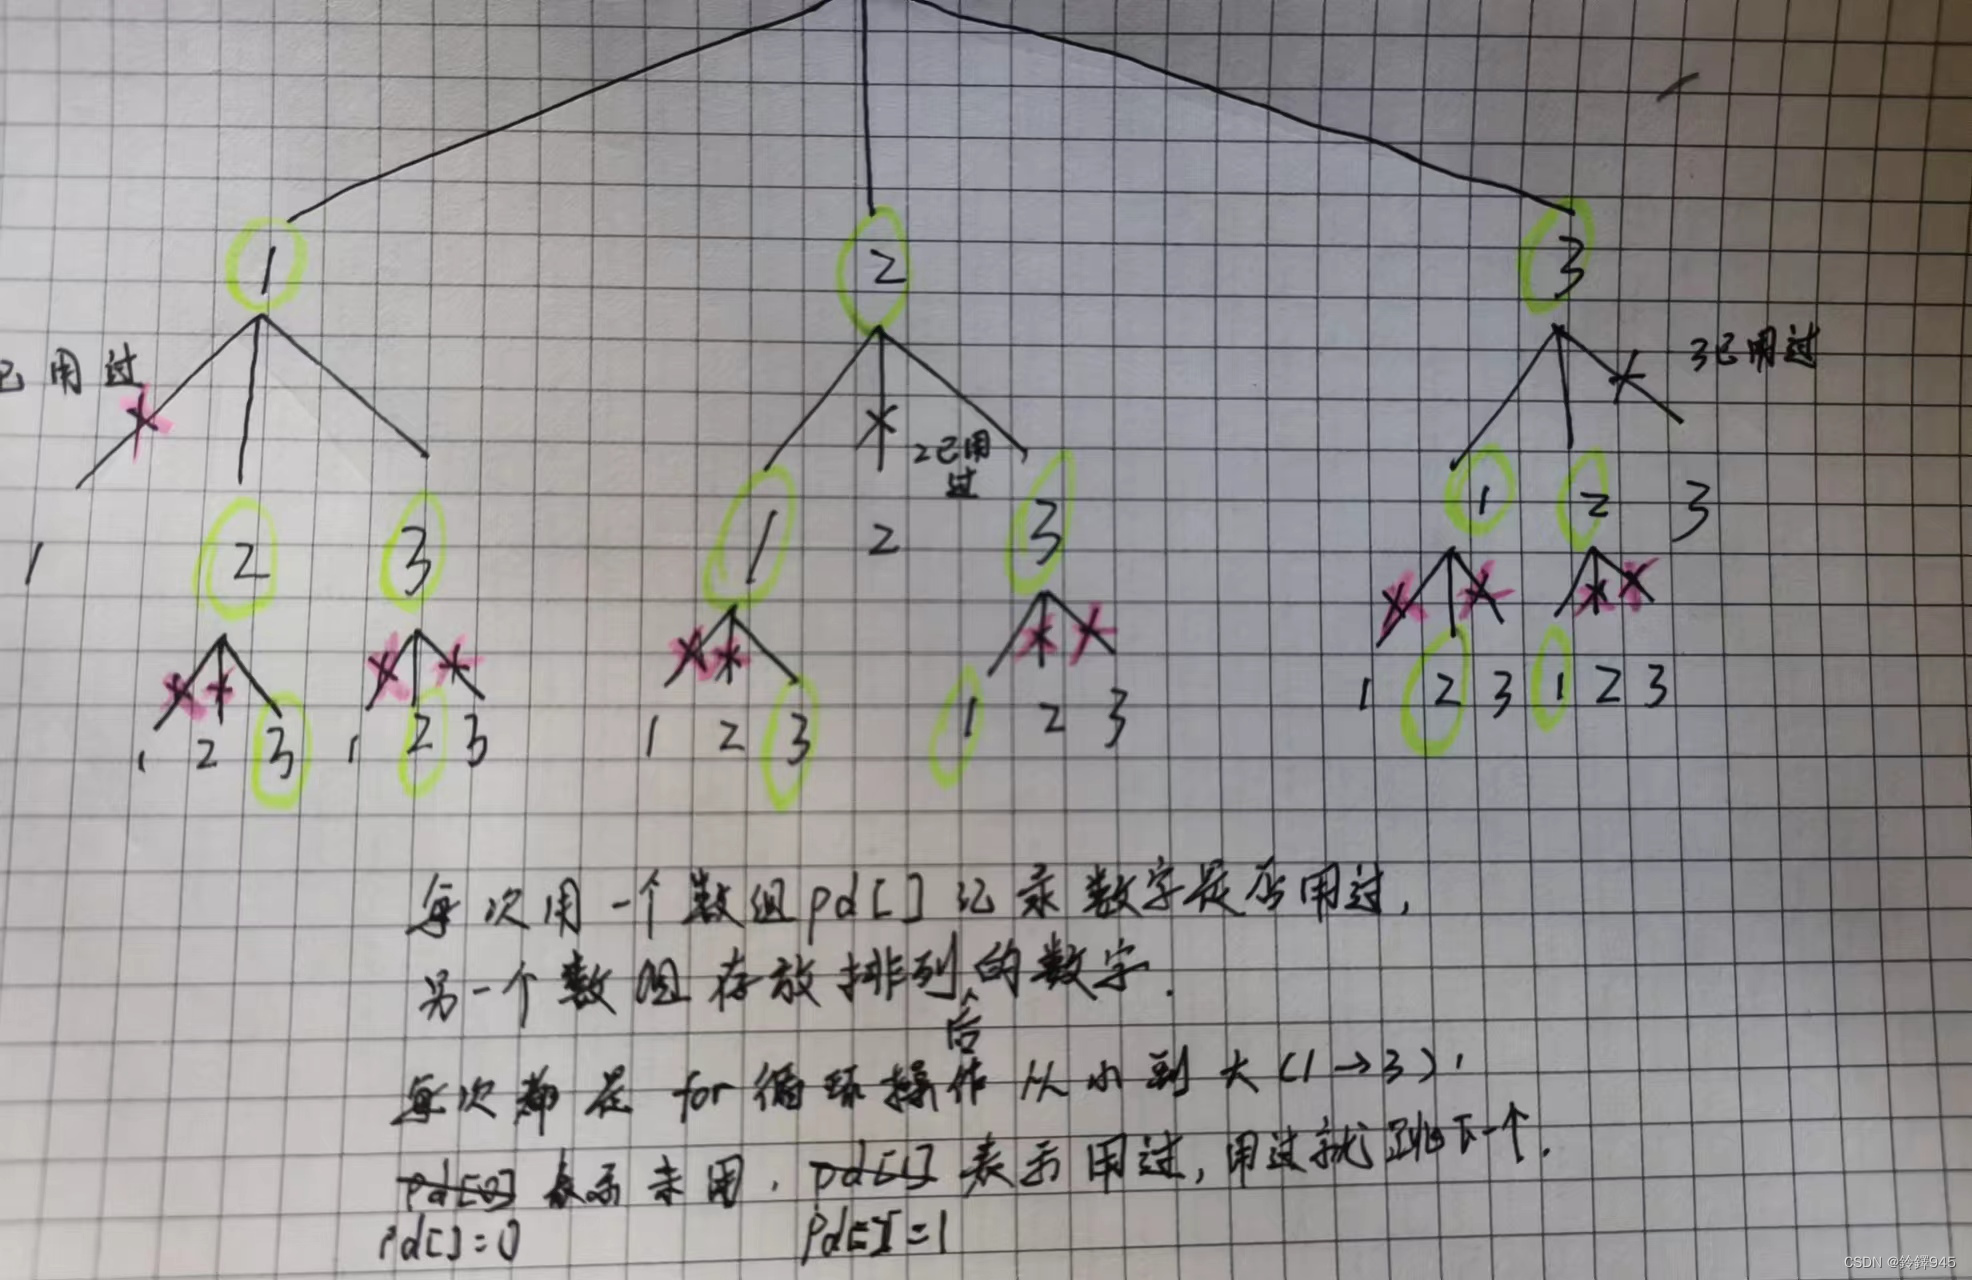 1 2 3
已用过
2已用
过
3已用过
1 2 3 1 2 3 1 2 3
1 2 3 1 2 3 1 2 3 1 2 3 1 2 3 1 2 3
每次用一个数组pd[]记录数字是否用过,
另一个数组存放排列后的数字.
每次都是 for循环操作从小到大(1→3),
pd[0] 表示未用. pd[1] 表示用过,用过就跳下一个.
pd[]=0 pd[]=1
CSDN @铃鐸945